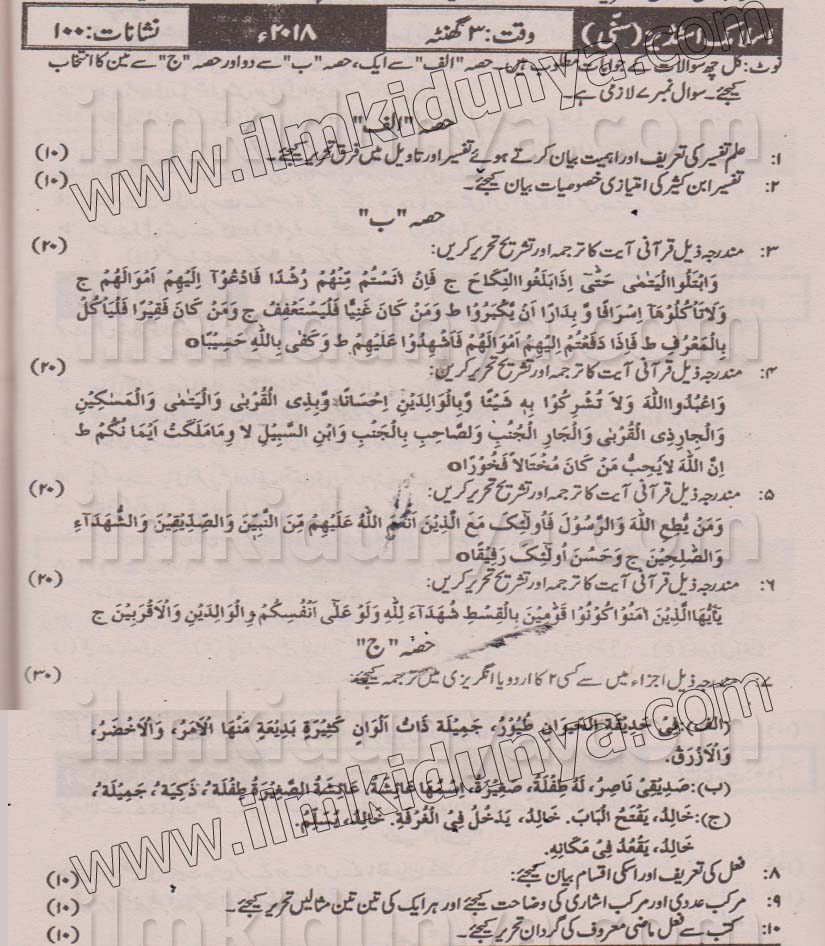 اسلامک اسٹڈیز (سنّی) وقت: ۳ گھنٹہ ۲۰۱۸ء نشانات: ۱۰۰
نوٹ: کل چھ سوالات کے جوابات مطلوب ہیں۔ حصہ "الف" سے ایک، حصہ "ب" سے دو اور حصہ "ج" سے تین کا انتخاب
کیجئے۔ سوال نمبر ۷ لازمی ہے۔
حصہ "الف"
۱: علم تفسیر کی تعریف اور اہمیت بیان کرتے ہوئے تفسیر اور تاویل میں فرق تحریر کیجئے۔ (۱۰)
۲: تفسیر ابن کثیر کی امتیازی خصوصیات بیان کیجئے۔ (۱۰)
حصہ "ب"
۳: مندرجہ ذیل قرآنی آیت کا ترجمہ اور تشریح تحریر کریں: (۲۰)
وَابْتَلُوا الْيَتٰمٰى حَتّٰى اِذَا بَلَغُوا النِّكَاحَ ج فَاِنْ اٰنَسْتُمْ مِّنْهُمْ رُشْدًا فَادْفَعُوْا اِلَيْهِمْ اَمْوَالَهُمْ ج
وَلَا تَاْكُلُوْهَآ اِسْرَافًا وَّ بِدَارًا اَنْ يَّكْبَرُوْا ط وَمَنْ كَانَ غَنِيًّا فَلْيَسْتَعْفِفْ ج وَمَنْ كَانَ فَقِيْرًا فَلْيَاْكُلْ
بِالْمَعْرُوْفِ ط فَاِذَا دَفَعْتُمْ اِلَيْهِمْ اَمْوَالَهُمْ فَاَشْهِدُوْا عَلَيْهِمْ ط وَكَفٰى بِاللّٰهِ حَسِيْبًاo
۴: مندرجہ ذیل قرآنی آیت کا ترجمہ اور تشریح تحریر کریں: (۲۰)
وَاعْبُدُوا اللّٰهَ وَلَا تُشْرِكُوْا بِهٖ شَيْئًا وَّبِالْوَالِدَيْنِ اِحْسَانًا وَّبِذِى الْقُرْبٰى وَالْيَتٰمٰى وَالْمَسٰكِيْنِ
وَالْجَارِذِى الْقُرْبٰى وَالْجَارِ الْجُنُبِ وَلصَّاحِبِ بِالْجَنْبِ وَابْنِ السَّبِيْلِ لا وَمَا مَلَكَتْ اَيْمَا نُكُمْ ط
اِنَّ اللّٰهَ لَايُحِبُّ مَنْ كَانَ مُخْتَالًا فَخُوْرًاo
۵: مندرجہ ذیل قرآنی آیت کا ترجمہ اور تشریح تحریر کریں: (۲۰)
وَمَنْ يُّطِعِ اللّٰهَ وَالرَّسُوْلَ فَاُولٰٓئِكَ مَعَ الَّذِيْنَ اَنْعَمَ اللّٰهُ عَلَيْهِمْ مِّنَ النَّبِيّٖنَ وَالصِّدِّيْقِيْنَ وَالشُّهَدَآءِ
وَالصّٰلِحِيْنَ ج وَحَسُنَ اُولٰٓئِكَ رَفِيْقًاo
۶: مندرجہ ذیل قرآنی آیت کا ترجمہ اور تشریح تحریر کریں: (۲۰)
يٰٓاَيُّهَا الَّذِيْنَ اٰمَنُوْا كُوْنُوْا قَوّٰمِيْنَ بِالْقِسْطِ شُهَدَآءَ لِلّٰهِ وَلَوْ عَلٰٓى اَنْفُسِكُمْ اَوِالْوَالِدَيْنِ وَالْاَقْرَبِيْنَ ج
حصہ "ج"
۷۔ مندرجہ ذیل اجزاء میں سے کسی ۲ کا اردو یا انگریزی میں ترجمہ کیجئے: (۳۰)
(الف): فِىْ حَدِيْقَةِ الْحَيَوَانِ طُيُوْرٌ، جَمِيْلَةٌ ذَاتُ اَلْوَانٍ كَثِيْرَةٍ بَدِيْعَةٍ مِنْهَا الْاَحْمَرُ، وَالْاَخْضَرُ،
وَالْاَزْرَقُ.
(ب): صَدِيْقِىْ نَاصِرٌ، لَهُ طِفْلَةٌ، صَغِيْرَةٌ، اِسْمُهَا عَائِشَةُ، عَائِشَةُ الصَّغِيْرَةُ طِفْلَةٌ، ذَكِيَةٌ، جَمِيْلَةٌ،
(ج): خَالِدٌ، يَفْتَحُ الْبَابَ. خَالِدٌ، يَدْخُلُ فِى الْغُرْفَةِ. خَالِدٌ، يُسَلِّمُ.
خَالِدٌ، يَقْعُدُ فِىْ مَكَانِهٖ.
۸: فعل کی تعریف اور اسکی اقسام بیان کیجئے: (۱۰)
۹: مرکب عددی اور مرکب اشاری کی وضاحت کیجئے اور ہر ایک کی تین تین مثالیں تحریر کیجئے۔ (۱۰)
۱۰: کتب سے فعل ماضی معروف کی گردان تحریر کیجئے۔ (۱۰)
www.ilmkidunya.com
www.ilmkidunya.com
ilmkidunya.com
ilmkidunya.com
ilmkidunya.com
ilmkidunya.com
ilmkidunya.com